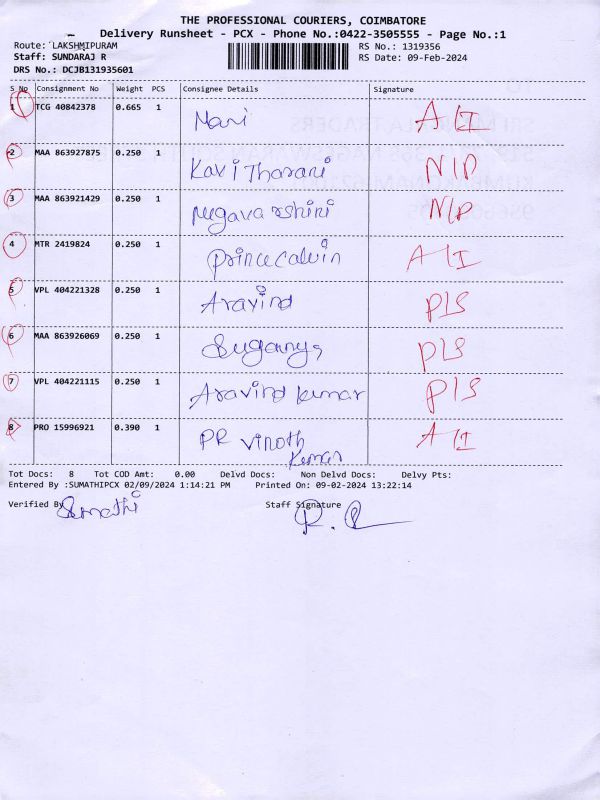 THE PROFESSIONAL COURIERS, COIMBATORE
Delivery Runsheet - PCX - Phone No.:0422-3505555 - Page No.:1
Route: LAKSHMIPURAM RS No.: 1319356
Staff: SUNDARAJ R RS Date: 09-Feb-2024
DRS No.: DCJB131935601
S No Consignment No Weight PCS Consignee Details Signature
1 TCG 40842378 0.665 1 Mari A/I
2 MAA 863927875 0.250 1 Kavi Tharani N/P
3 MAA 863921429 0.250 1 Megavarshini N/P
4 MTR 2419824 0.250 1 Princecalvin A/I
5 VPL 404221328 0.250 1 Aravind P/S
6 MAA 863926069 0.250 1 Suganya P/S
7 VPL 404221115 0.250 1 Aravind Kumar P/S
8 PRO 15996921 0.390 1 PR Vinoth A/I
Kumar
Tot Docs: 8 Tot COD Amt: 0.00 Delvd Docs: Non Delvd Docs: Delvy Pts:
Entered By :SUMATHIPCX 02/09/2024 1:14:21 PM Printed On: 09-02-2024 13:22:14
Verified By Sumathi Staff Signature